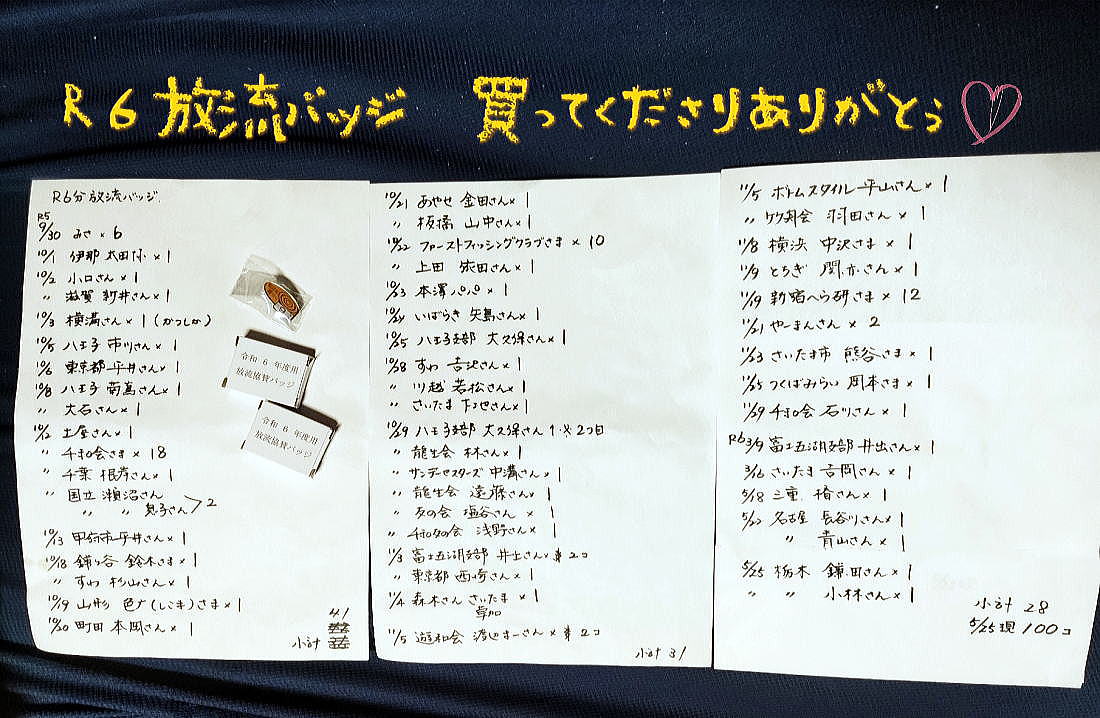 R6放流バッジ 買ってくださりありがとぅ
R6分放流バッジ
R5
9/30 みさ×6
10/1 伊那 太田 ×1
10/2 小口さん×1
〃 滋賀 新井さん×1
10/3 横溝さん×1(かつしか)
10/5 八王子 市川さん×1
10/6 東京都 平井さん×1
10/8 八王子 南島さん×1
〃 大石さん×1
10/2 土屋さん×1
〃 千和会さま×18
〃 千葉 根岸さん×1
〃 国立 瀬沼さん
〃 〃 息子さん>2
10/13 甲府市 平井さん×1
10/18 鎌ヶ谷 鈴木さま×1
〃 すわ 杉山さん×1
10/19 山形 色ナ(しこき)さま×1
10/20 町田 本岡さん×1
41
小計
令和 6 年度用
放流協賛バッジ
令和 6 年度用
放流協賛バッジ
10/21 あやせ 金田さん×1
〃 板橋 山中さん×1
10/22 ファーストフィッシングクラブさま×10
〃 上田 依田さん×1
10/23 本澤パパ×1
10/24 いばらき 矢島さん×1
10/25 八王子支部 大久保さん×1
10/28 すわ 吉沢さん×1
〃 川越 若松さん×1
〃 さいたま さん×1
10/29 八王子支部 大久保さん 1 ※2コ目
〃 龍生会 林さん×1
〃 サンデーセスターズ 中溝さん×1
〃 龍生会 遠藤さん×1
〃 夕の会 塩谷さん×1
〃 千和夕の会 浅野さん×1
11/3 富士五湖支部 井出さん× 2コ
〃 東京都 西崎さん×1
11/4 森木さん さいたま×1
草加
11/5 遊和会 渡辺まーさん× 2コ
小計 31
11/5 ボトムスタイル平山さん×1
〃 竹芙会 羽田さん×1
11/8 横浜 中沢さま×1
11/9 とちぎ 関 さん×1
11/19 新宿へら研さま×12
11/21 やーまんさん×2
11/23 さいたま市 熊谷さま×1
11/25 つくばみらい 岡本さま×1
11/29 千和会 石川さん×1
R6 3/9 富士五湖支部 井出さん×1
3/16 さいたま 吉岡さん×1
5/18 三重 椿さん×1
5/20 名古屋 長谷川さん×1
〃 青山さん×1
5/25 栃木 鎌田さん×1
〃 〃 小林さん×1
小計 28
5/25現 100コ